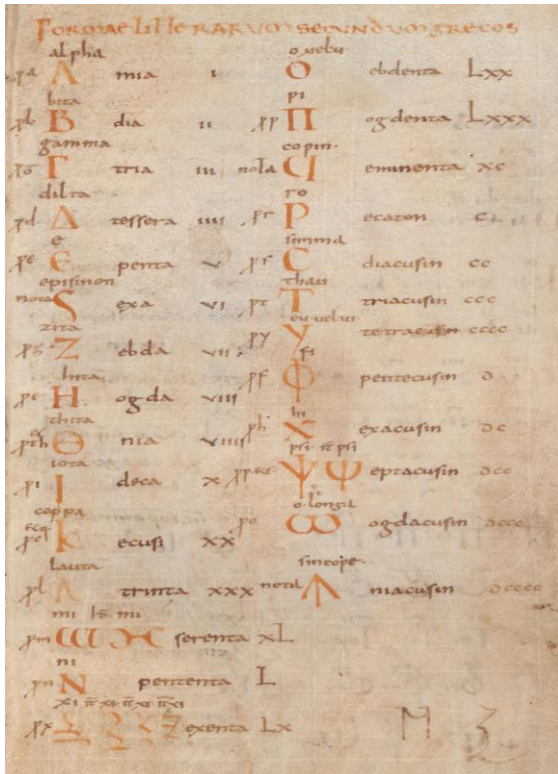 FORMAE LITTERARUM SECUNDUM GRECOS
alpha
pa Λ mia I
bita
pb B dia II
gamma
Γ tria III
dilta
pd Δ tessera IIII
e
pe Є penta V
episinon
nota S exa VI
zita
pz Z ebda VII
hita
pe H ogda VIII
thita
pth Θ nia VIIII
iota
pi I deca X
coppa
k ecusi XX
lauta
pl Λ trinta XXX
mi mi
pm serenta XL
ni
pn N pententa L
xi xi xi xi
px exenta LX
O ebdenta LXX
pi
pp Π ogdenta LXXX
copin
nota Ϥ eninenta XC
ro
pr P ecaton C
simma
ps C diacusin CC
thau
pt T triacusin CCC
py Y tetracusin CCCC
fi
pf Φ pentecusin D
hi
ph X exacusin DC
psi psi
Ψ Ψ eptacusin DCC
o longa
po ω ogdacusin DCCC
sincope
nota niacusin DCCCC
M